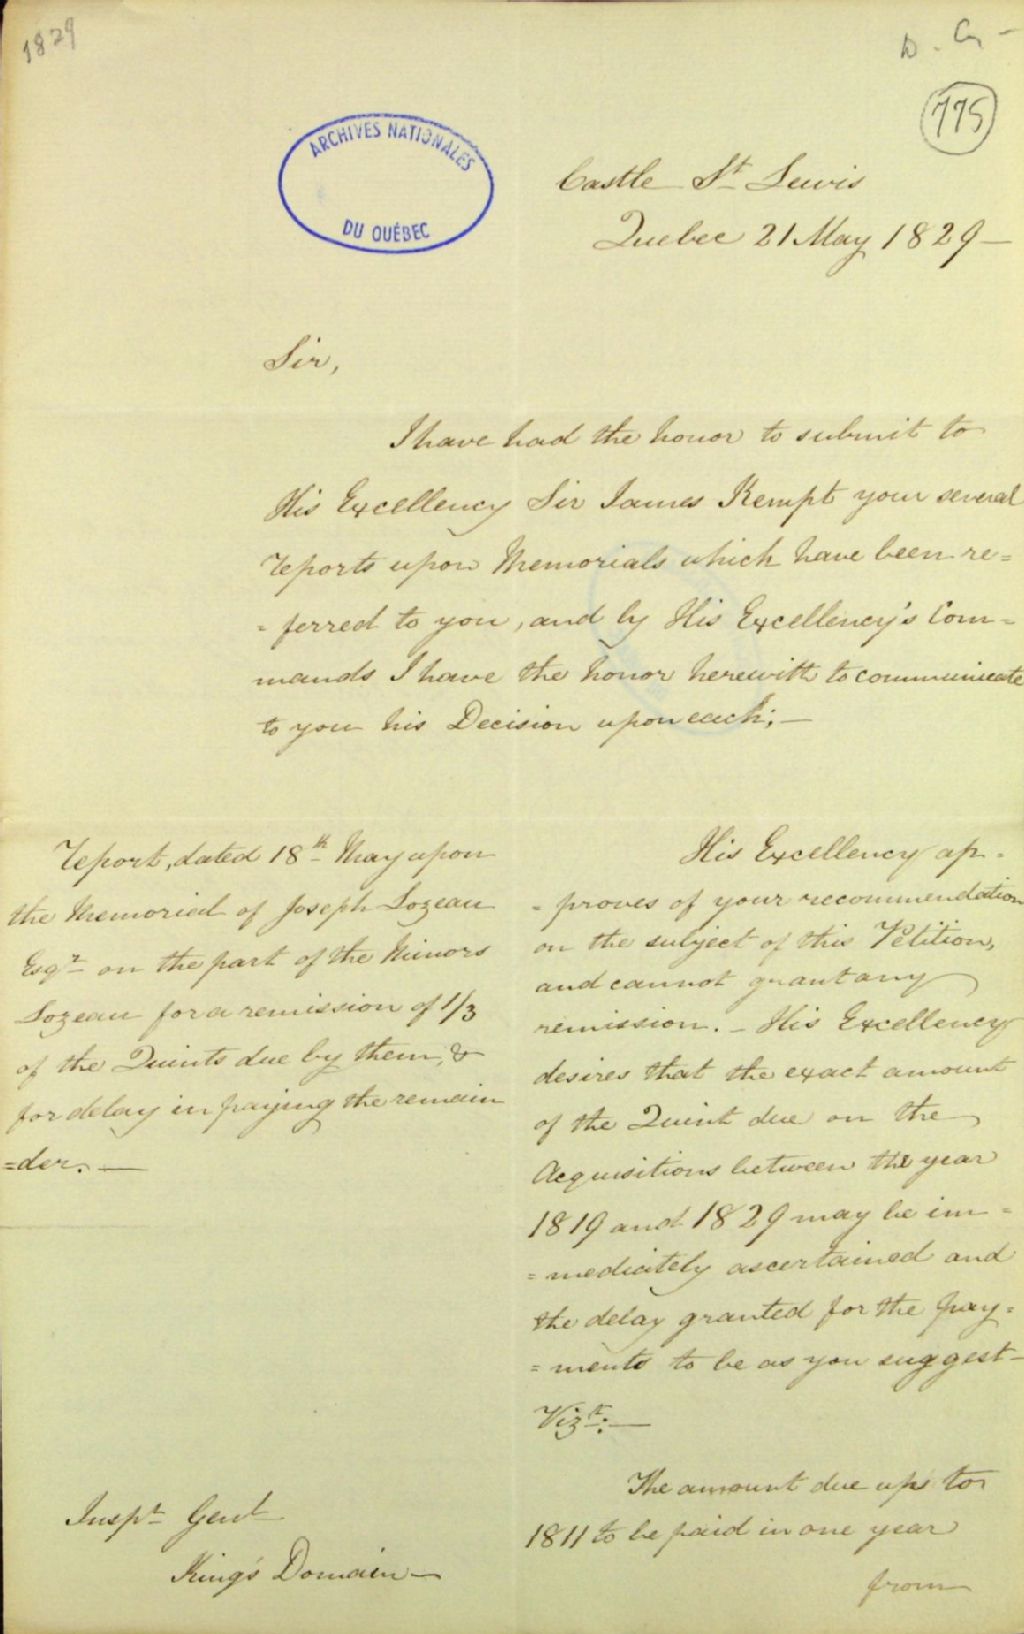 1829
D. G -
775
ARCHIVES NATIONALES
DU QUÉBEC
Castle St Lewis
Quebec 21 May 1829 —
Sir,
I have had the honor to submit to
His Excellency Sir James Kempt your several
reports upon Memorials which have been re=
= ferred to you, and by His Excellency's Com=
mands I have the honor herewith to communicate
to you his Decision upon each; —
Report, dated 18th May upon
the Memorial of Joseph Lozeau
Esqr on the part of the Minors
Lozeau for a remission of 1/3
of the Quints due by them, &
for delay in paying the remain
=der. —
His Excellency ap=
= proves of your recommendation
on the subject of this Petition,
and cannot grant any
remission. — His Excellency
desires that the exact amount
of the Quint due on the
Acquisitions between the year
1819 and 1829 may be im=
= mediately ascertained and
the delay granted for the pay=
= ments to be as you suggest —
Vizt: —
The amount due up to
1811 to be paid in one year
from
Inspr Genl
King's Domain —